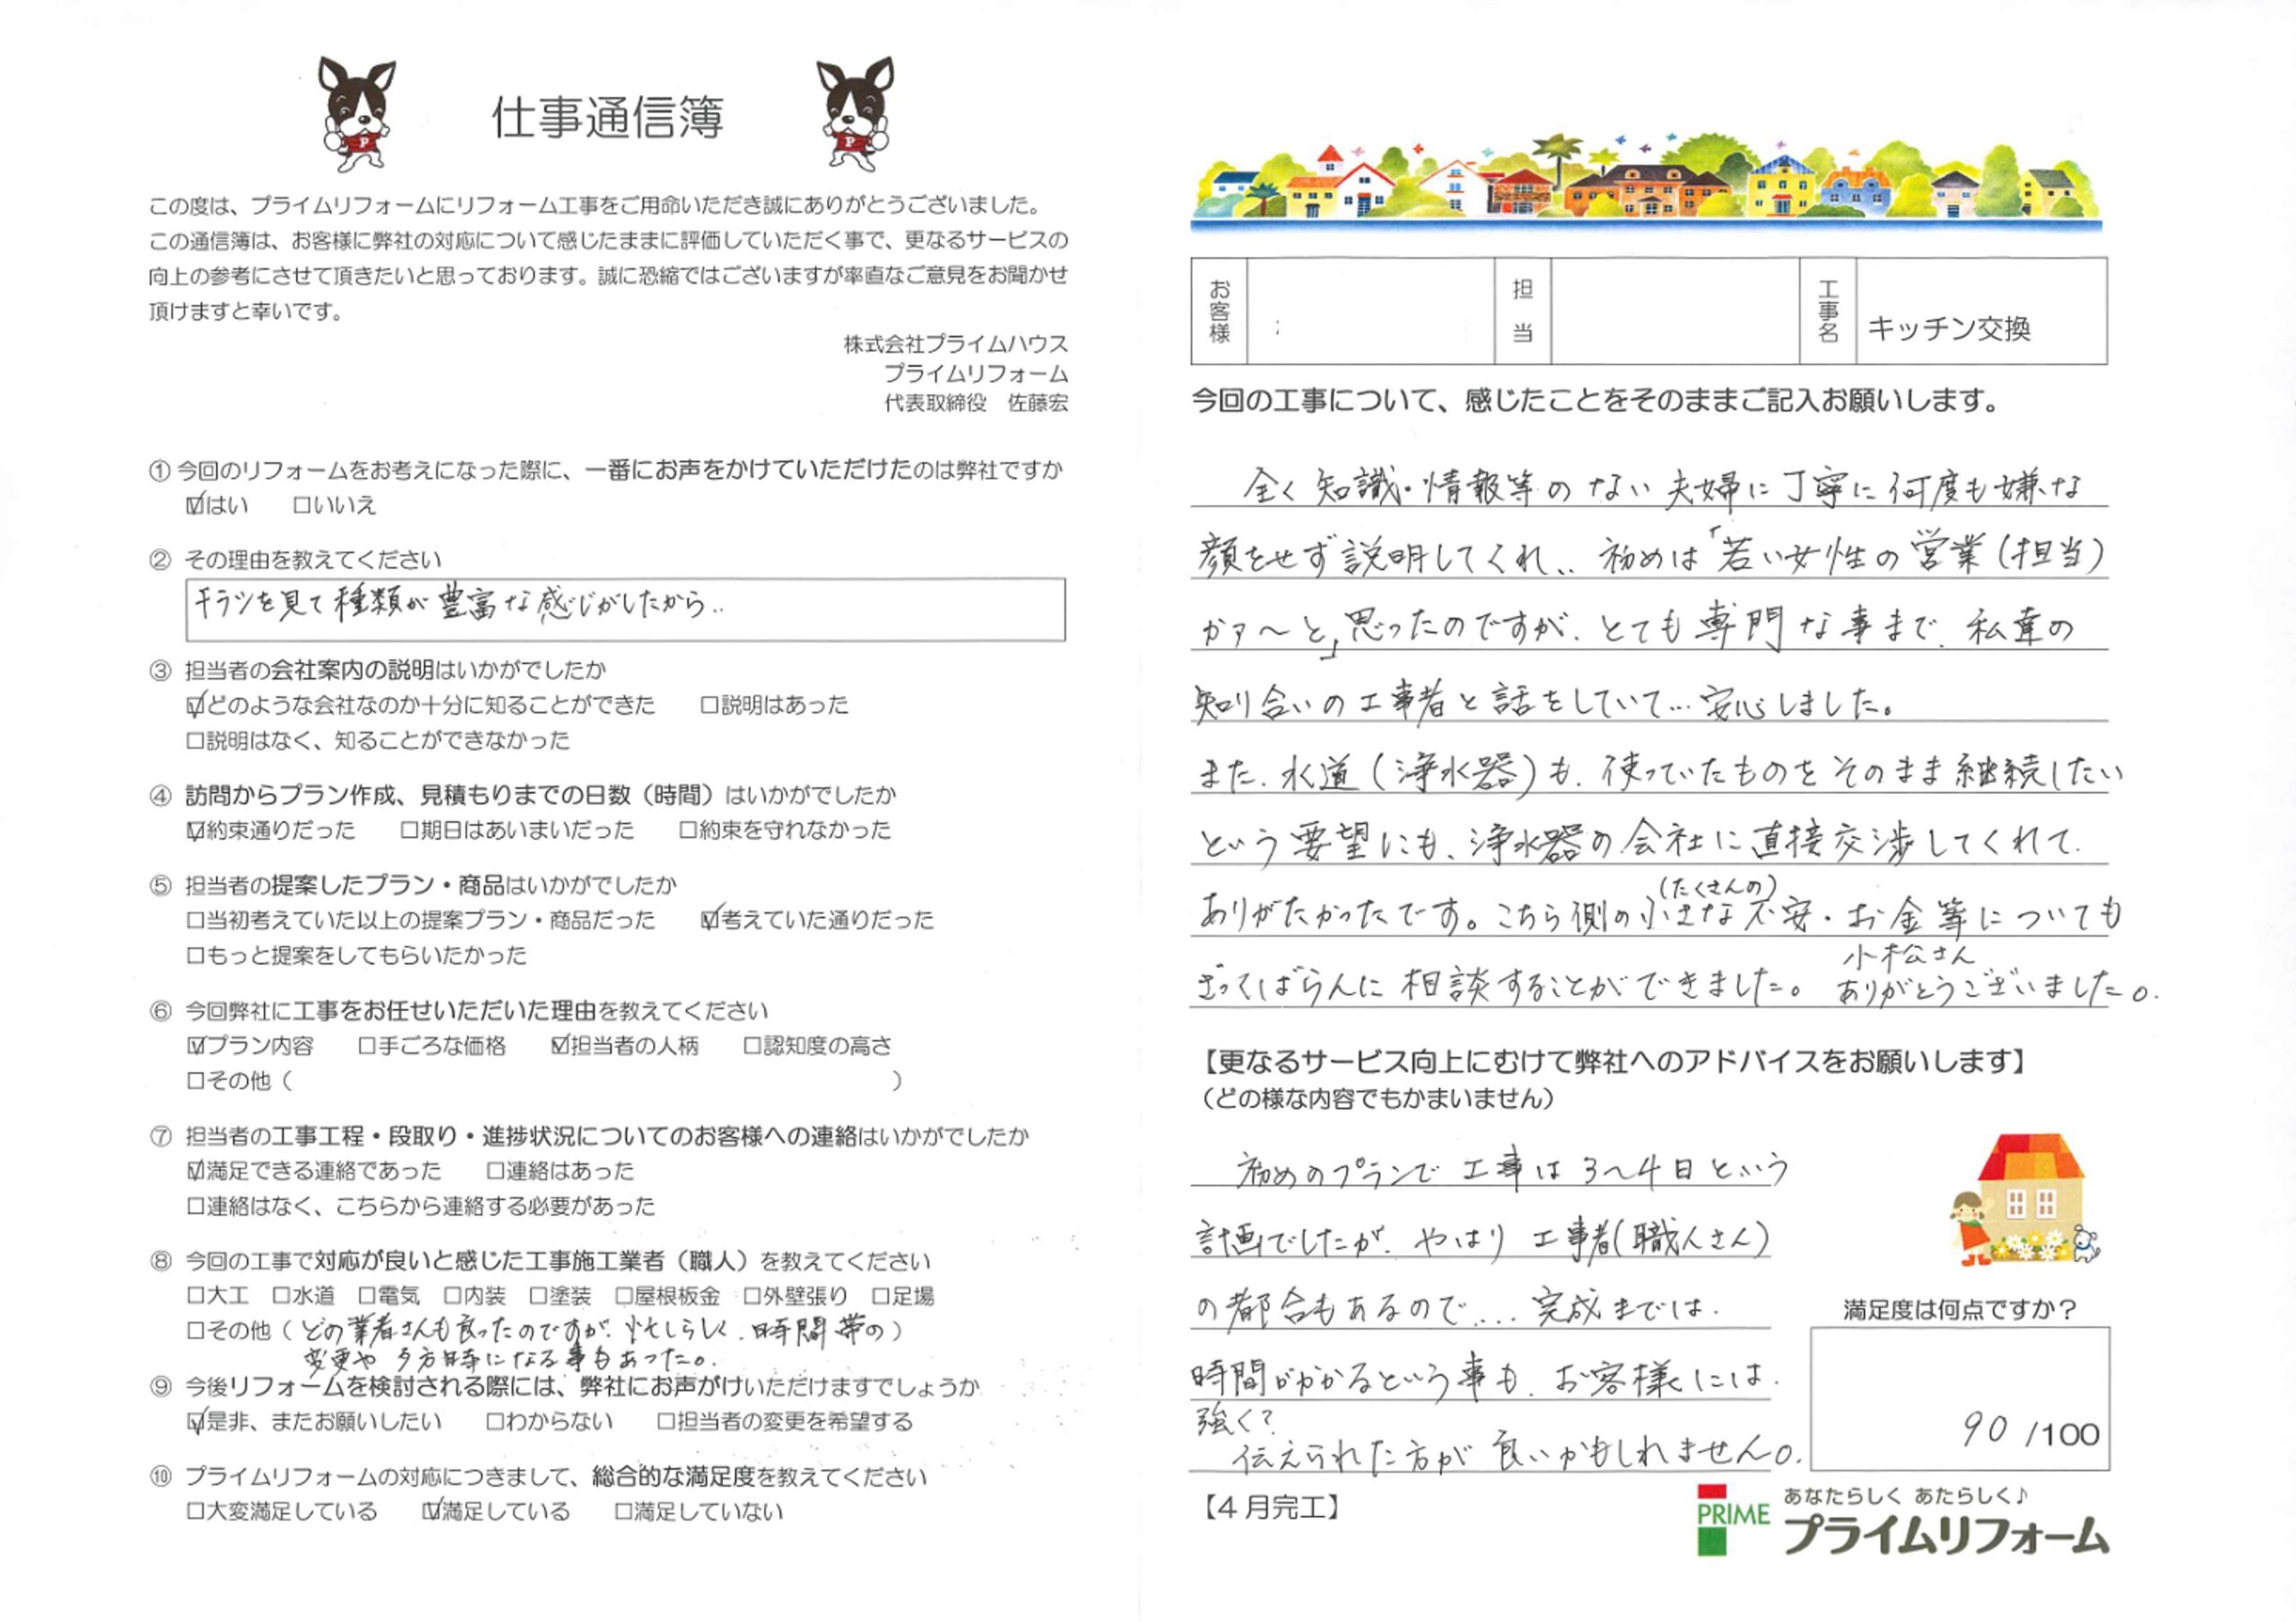 仕事通信簿
この度は、プライムリフォームにリフォーム工事をご用命いただき誠にありがとうございました。
この通信簿は、お客様に弊社の対応について感じたままに評価していただく事で、更なるサービスの
向上の参考にさせて頂きたいと思っております。誠に恐縮ではございますが率直なご意見をお聞かせ
頂けますと幸いです。
株式会社プライムハウス
プライムリフォーム
代表取締役 佐藤宏
① 今回のリフォームをお考えになった際に、一番にお声をかけていただけたのは弊社ですか
☑はい □いいえ
② その理由を教えてください
チラシを見て種類が豊富な感じがしたから..
③ 担当者の会社案内の説明はいかがでしたか
☑どのような会社なのか十分に知ることができた □説明はあった
□説明はなく、知ることができなかった
④ 訪問からプラン作成、見積もりまでの日数（時間）はいかがでしたか
☑約束通りだった □期日はあいまいだった □約束を守れなかった
⑤ 担当者の提案したプラン・商品はいかがでしたか
□当初考えていた以上の提案プラン・商品だった ☑考えていた通りだった
□もっと提案をしてもらいたかった
⑥ 今回弊社に工事をお任せいただいた理由を教えてください
☑プラン内容 □手ごろな価格 ☑担当者の人柄 □認知度の高さ
□その他（ ）
⑦ 担当者の工事工程・段取り・進捗状況についてのお客様への連絡はいかがでしたか
☑満足できる連絡であった □連絡はあった
□連絡はなく、こちらから連絡する必要があった
⑧ 今回の工事で対応が良いと感じた工事施工業者（職人）を教えてください
□大工 □水道 □電気 □内装 □塗装 □屋根板金 □外壁張り □足場
□その他（どの業者さんも良ったのですが、忙しらしく、時間帯の）
変更や夕方時になる事もあった。
⑨ 今後リフォームを検討される際には、弊社にお声がけいただけますでしょうか
☑是非、またお願いしたい □わからない □担当者の変更を希望する
⑩ プライムリフォームの対応につきまして、総合的な満足度を教えてください
□大変満足している ☑満足している □満足していない
お客様 担当 工事名 キッチン交換
今回の工事について、感じたことをそのままご記入お願いします。
全く知識・情報等のない夫婦に丁寧に何度も嫌な
顔をせず説明してくれ、、初めは「若い女性の営業（担当）
かァ〜と」思ったのですが、とても専門な事まで、私達の
知り合いの工事者と話をしていて…安心しました。
また、水道（浄水器）も、使っていたものをそのまま継続したい
という要望にも、浄水器の会社に直接交渉してくれて、
ありがたかったです。こちら側の小さな（たくさんの）不安・お金等についても
ざっくばらんに相談することができました。小松さん
ありがとうございました。
【更なるサービス向上にむけて弊社へのアドバイスをお願いします】
（どの様な内容でもかまいません）
初めのプランで工事は3〜4日という
計画でしたが、やはり工事者（職人さん）
の都合もあるので....完成までは、
時間がかかるという事も、お客様には、
強く？
伝えられた方が良いかもしれません。
満足度は何点ですか？
90 /100
【4月完工】
PRIME
あなたらしく あたらしく♪
プライムリフォーム